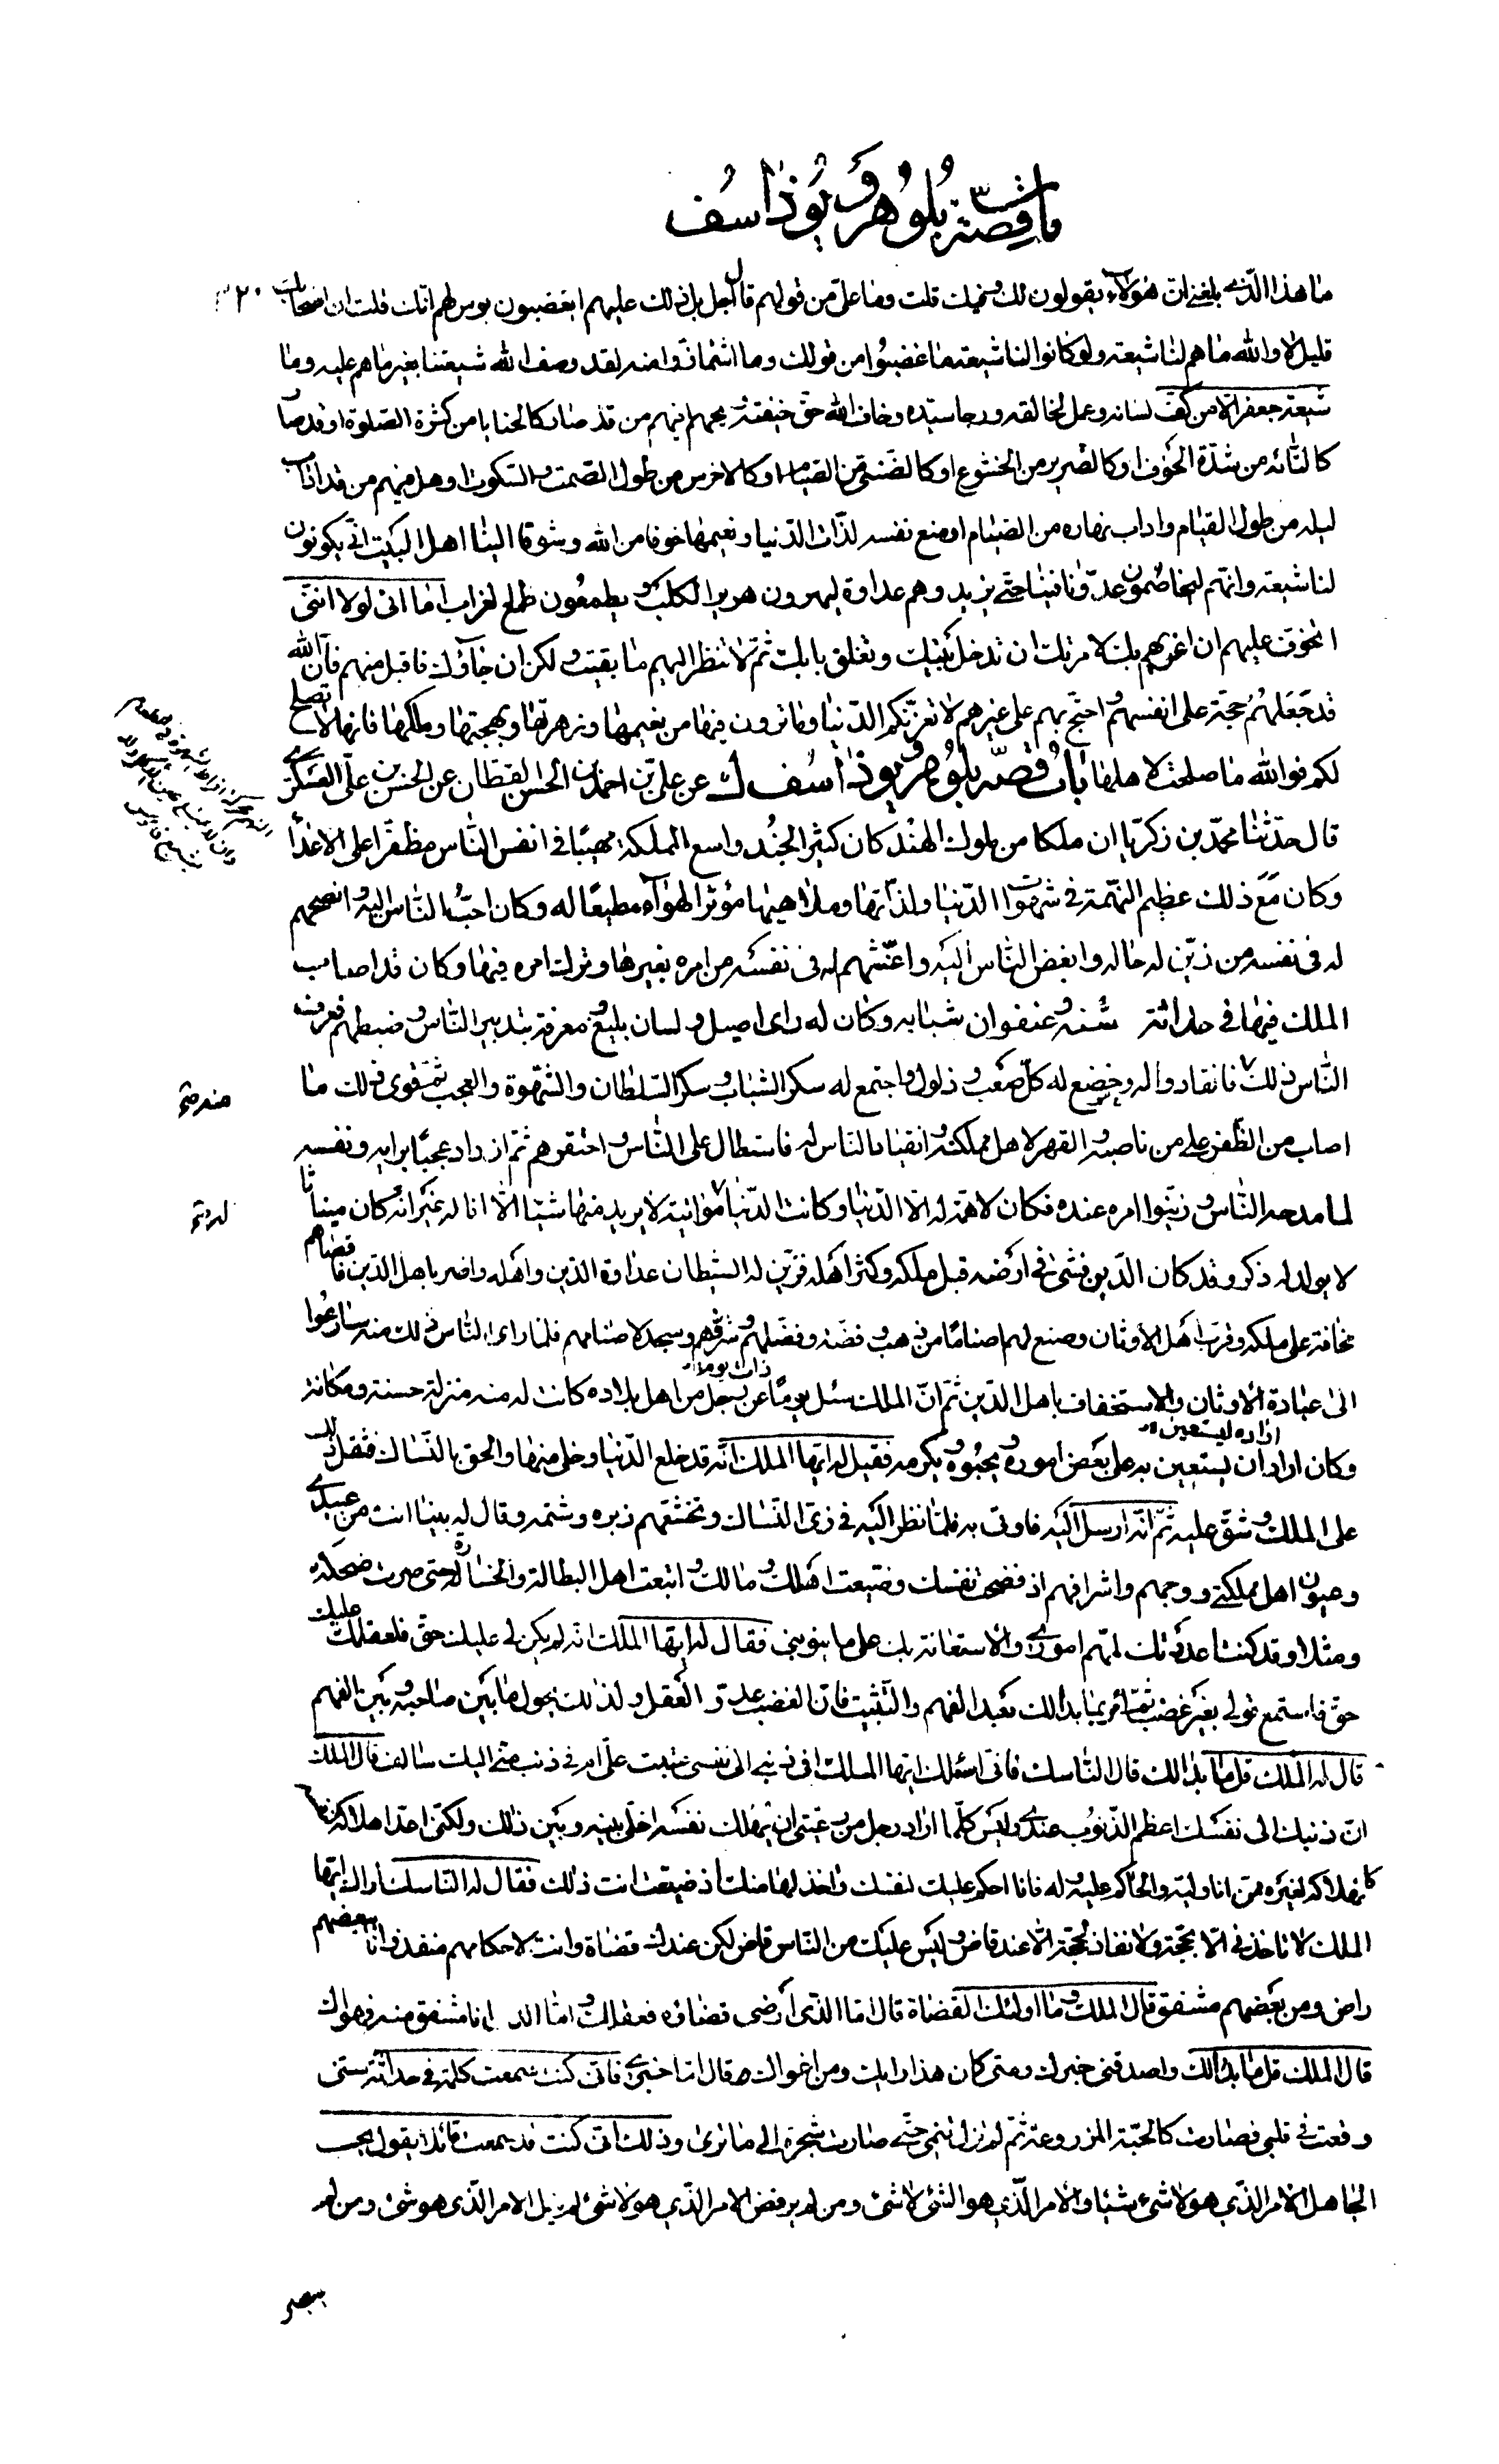 باب قصّة بُلُوهَر وَ يُوذاسُف
ما هذا الّذى بلغنى ان هؤلاء يقولون لك ونحيك قلت وما علىّ من قولهم قال اجل بل ذلك عليهم ايغضبون بوس لهم انك قلت ان اصحابك
قليل لا والله ما هم لنا شيعة ولو كانوا لنا شيعة ما غضبوا من قولك وما اشمأزّوا منه لقد وصف الله شيعتنا بغير ما هم عليه وما
شيعة جعفر الا من كفّ لسانه وعمل لخالقه ورجا سيّده وخاف الله حقّ خيفته ويحهم افيهم من قد صار كالحنايا من كثرة الصّلوة او قد صار
كالتّائه من شدّة الخوف او كالضّرير من الخشوع او كالضّنى من الصّيام او كالاخرس من طول الصّمت والسّكوت او هل فيهم من قد اداب
ليله من طول القيام واداب نهاره من الصّيام او منع نفسه لذّات الدّنيا ونعيمها خوفا من الله وشوقا الينا اهل البيت انّى يكونون
لنا شيعة وانّهم ليخاصمون عدوّنا فينا حتّى يزيدوهم عداوة ليهرون هرير الكلب ويطمعون طمع الغراب اما انى لولا اننى
اتخوّف عليهم ان اغريهم بك لامرتك ان تدخل بيتك وتغلق بابك ثمّ لا تنظر اليهم ما بقيت ولكن ان جاؤك فاقبل منهم فانّ الله
قد جعلهم حجّة على انفسهم واحتج بهم على غيرهم لا تغرّنّكم الدّنيا وما ترون فيها من نعيمها وزهرتها وبهجتها وملكها فانها لا تصلح
لكم فوالله ما صلحت لاهلها باب قصّة بلُوهر ويوذاسُف ك عن على بن احمد بن الحسن القطان عن الحسن بن علىّ العسكرى
قال حدّثنا محمّد بن زكريّا ان ملكا من ملوك الهند كان كثير الجُند واسع المملكة مهيبًا فى انفس النّاس مظفّرا على الاعداء
وكان مَع ذلك عظيم النهّمة فى شهوات الدّنيا ولذّاتها وملاهيها مؤثرا لهواه مطيعًا له وكان احبُّ النّاس اليه وانصحهم
له فى نفسه من زيّن له حاله وابغض النّاس اليه واغشّهم له فى نفسه من امره بغيرها وترك امره فيها وكان قد اصاب
الملك فيها فى حداثة سُنّه وعنفوان شبابه وكان له راى اصيل ولسان بليغ ومعرفة بتدبير النّاس وضبطهم فعرف
النّاس ذلك فانقادوا له وخضع له كلّ صعب وذلول واجتمع له سكر الشباب وسكر السّلطان والشّهوة والعجب ثمّ قوى ذلك ما
اصاب من الظّفر على من ناصبه والقهر لاهل مملكته وانقياد النّاس له فاستطال على النّاس واحتقرهم ثمّ ازداد عجبًا برايه ونفسه
لما مدحه النّاس وزيّنوا امره عنده فكان لا همّة له الّا الدّنيا وكانت الدّنيا مؤاتية لا يريد منها شيئا الّا اناله غير انّه كان ميناثا
لا يولد له ذكر وقد كان الدّين فشى فى ارضه قبل ملكه وكثر اهله فزيّن له الشّيطان عداوة الدّين واهله واضر باهل الدّين فاقصاهم
مخافة على ملكه وقرّب اهل الاوثان وصنع لهم اصنامًا من ذهب وفضّة وفضّلهم وشرّفهم وسجد لاصنامهم فلمّا راى النّاس ذلك منه سارعُوا
الى عبادة الاوثان والاستخفاف باهل الدّين ثمّ انّ الملك سئل يومًا عن رجل من اهل بلاده كانت له منه منزلة حسنة ومكانة
وكان اراد ان يستعين به على بعض اموره ويحبُوه ويكرمه فقيل له ايّها الملك انّه قد خلع الدّنيا وخلى منها والحق بالنّسّاك فثقل ذلك
على الملك وشقّ عليه ثمّ انّه ارسل اليه فاوتى به فلمّا نظر اليه فى زىّ النّسّاك وتخشّعهم زبره وشتمه وقال له بينا انت من عبيدى
وعيون اهل مملكتى ووجههم واشرافهم اذ فضحت نفسك وضيعت اهلك ومالك واتبعت اهل البطالة والخسارة حتى صرت ضحكة
ومثلا وقد كنت اعددتك لمهم امورى والاستعانة بك على ما ينوبنى فقال له ايّها الملك انّه لم يكن لى عليك حقّ فلعقلك عليك
حقّ فاستمع قولى بغير غضب ثمّ اؤمر بما بدا لك بعد الفهم والتّثبيت فانّ الغضب عدوّ العقل ولذلك يحول ما بين صاحبه وبين الفهم
قال له الملك قل ما بدا لك قال النّاسك فانّى اسئلك ايّها الملك افى ذنبى الى نفسى عتبت علىّ ام فى ذنب منّى اليك سالف قال الملك
انّ ذنبك الى نفسك اعظم الذّنوُب عندى وليس كلّما اراد رجل من رعيّتى ان يهلك نفسه اخلّى بينه وبين ذلك ولكنّى اعدّ اهلاكه نفسه
كاهلاكه لغيره ممّن انا وليّه والحاكم عليه وله فانا احكم عليك لنفسك واخذ لها منك اذ ضيّعت انت ذلك فقال له النّاسك اراك ايّها
الملك لا تاخذنى الّا بحجّة ولا نفاذ لحجّة الّا عند قاض وليس عليك من النّاس قاض لكن عندك قضاة وانت لاحكامهم منفذ وانا ببعضهم
راض ومن بعضهم مشفق قال الملك وما اولئك القضاة قال امّا الّذى ارضى قضاؤه فعقلك وامّا الّذى انا مشفق منه فهواك
قال الملك قل ما بدا لك واصدقنى خبرك ومتى كان هذا رايك ومن اغواك قال امّا خبرى فانّى كنت سمعت كلمة فى حداثة سنّى
وقعت فى قلبى فصارت كالحبّة المزروعة ثمّ لم تزل تنمى حتّى صارت شجرة الى ما ترى وذلك انّى كنت قد سمعت قائلا يقول يحسب
الجاهل الامر الّذى هو لا شىء شيئا والامر الّذى هو الشّىء لا شىء ومن لم يرفض الامر الّذى هو لا شىء لم ينل الامر الّذى هو شىء ومن لم
يبصر